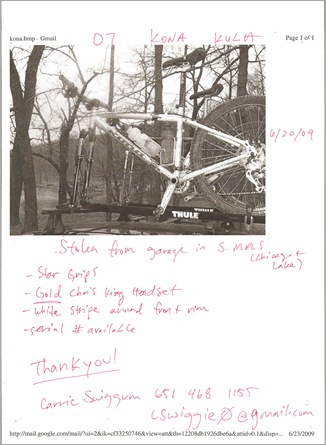 kona.bmp - Gmail
Page 1 of 1
07 KONA KULA
6/20/09
THULE
Stolen from garage in S. MPLS
(Chicago + Lake)
- Star Grips
- Gold Chris King Headset
- White Stripe around front rim
- serial # available
Thank you!
Carrie Swiggum 651 468 1155
cswiggie0@gmail.com
http://mail.google.com/mail/?ui=2&ik=cf33250746&view=att&th=12208db1926dbe6a&attid=0.1&disp=...
6/23/2009